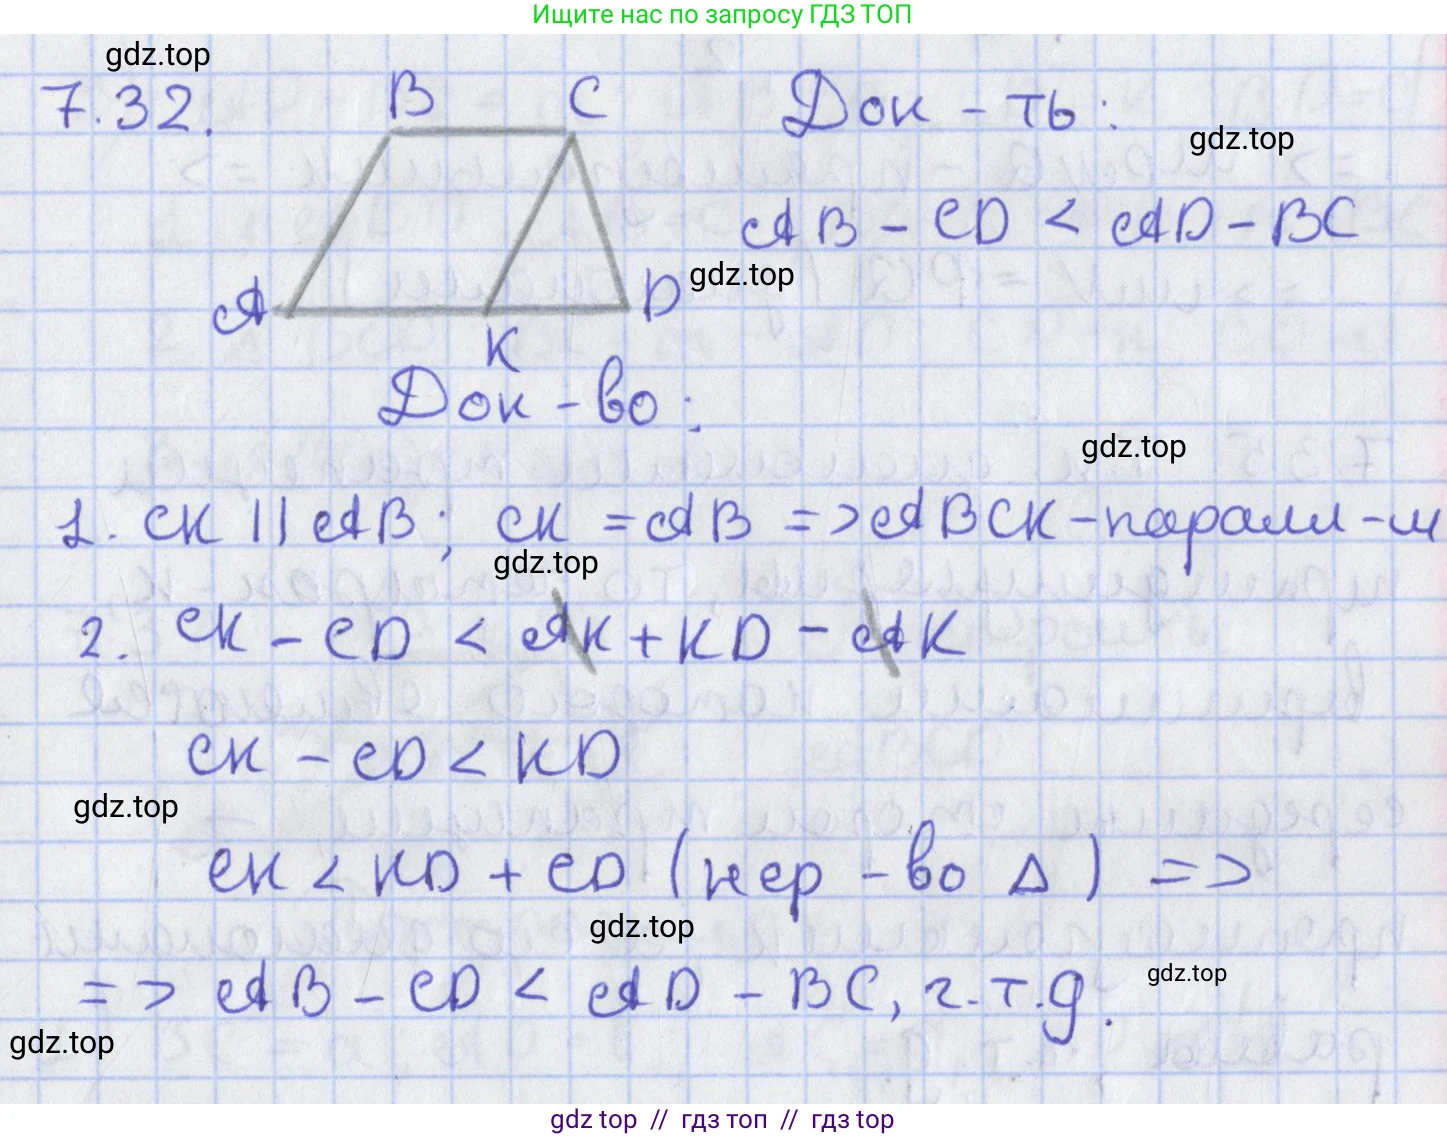 Ищите нас по запросу ГДЗ ТОП
gdz.top
7.32.
B C
Док-ть:
gdz.top
AB - CD < AD - BC
gdz.top
A D
K
Док-во:
gdz.top
1. CK || AB; CK = AB => ABCK - паралл-м
gdz.top
2. CK - CD < AK + KD - AK
CK - CD < KD
gdz.top
CK < KD + CD (нер-во Δ) =>
gdz.top
=> AB - CD < AD - BC, ч.т.д.
gdz.top
gdz.top
gdz top // гдз топ // гдз top